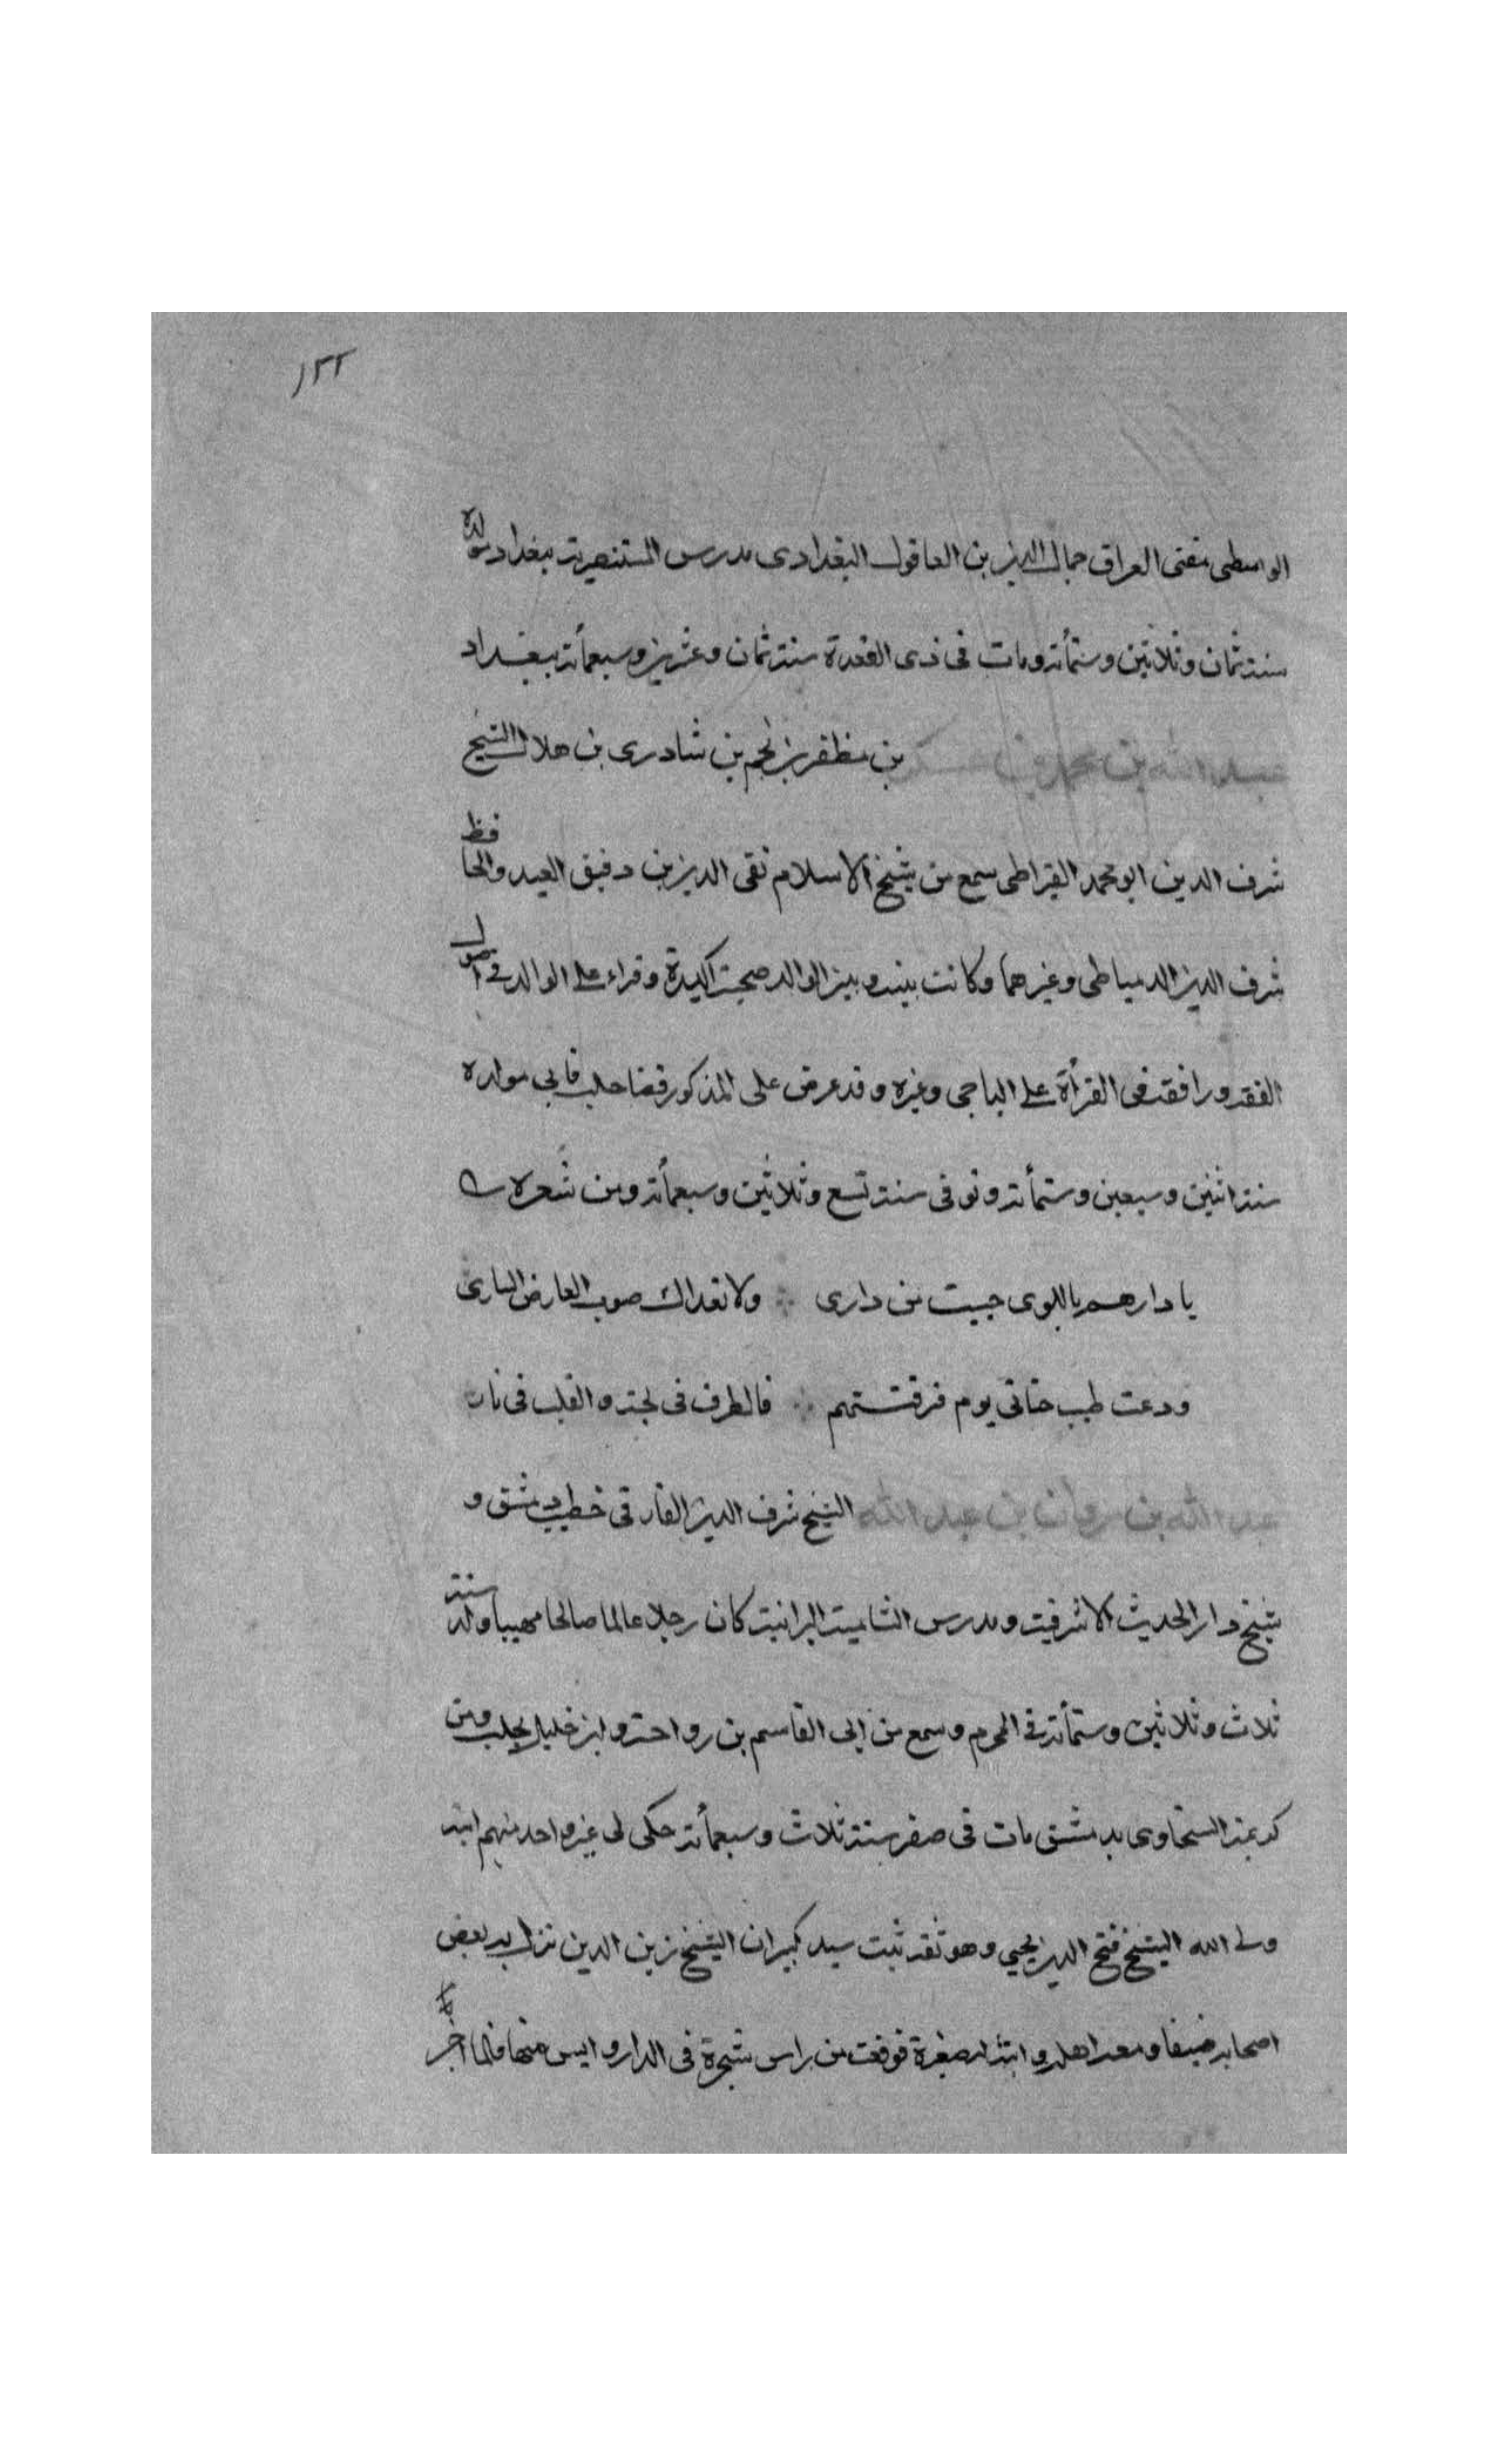 ١٣٢
الواسطى مفتى العراق جمال الدين بن العاقول البغدادى مدرس المستنصرية ببغداد مولده
سنة ثمان وثلاثين وستمأئة ومات فى ذى القعدة سنة ثمان وعشرين وسبعمأئة ببغداد
عبد الله بن محمد بن عسكر بن مظفر بن نجم بن شادى بن هلال الشيخ
شرف الدين ابو محمد القيراطى سمع من شيخ الاسلام تقى الدين بن دقيق العيد والحافظ
شرف الدين الدمياطى وغيرهما وكانت بينه وبين الوالد صحبة اكيدة وقراء على الوالد فى اصول
الفقه ورافقه فى القرأة على الباجى وغيره وقد عرض على المذكور قضا حلب فابى مولده
سنة اثنين وسبعين وستمأئة وتوفى سنة تسع وثلاثين وسبعمأئة ومن شعره
يا دارهم باللوى حييت من دارى ولا تعداك صوب العارض السارى
ودعت طيب حياتى يوم فرقتهم فالطرف فى لجة والقلب فى نار
عبد الله بن مروان بن عبد الله الشيخ شرف الدين الفارقى خطيب دمشق و
شيخ دار الحديث الاشرفية ومدرس الشامية البرانية كان رجلا عالما صالحا مهيبا ولد سنة
ثلاث وثلاثين وستمأئة فى المحرم وسمع من ابى القاسم بن رواحة وابن خليل بحلب ومن
كريمة السخاوى بدمشق مات فى صفر سنة ثلاث وسبعمأئة حكى لى غير واحد منهم ابنه
ولى الله الشيخ فتح الدين يحيى وهو ثقة ثبت سيد كبير ان الشيخ زين الدين نزل به بعض
اصحابه ضيفا ومعه اهله وابنة له صغيرة فوقعت من راس شجرة فى الدار وايس منها فلما اخبر